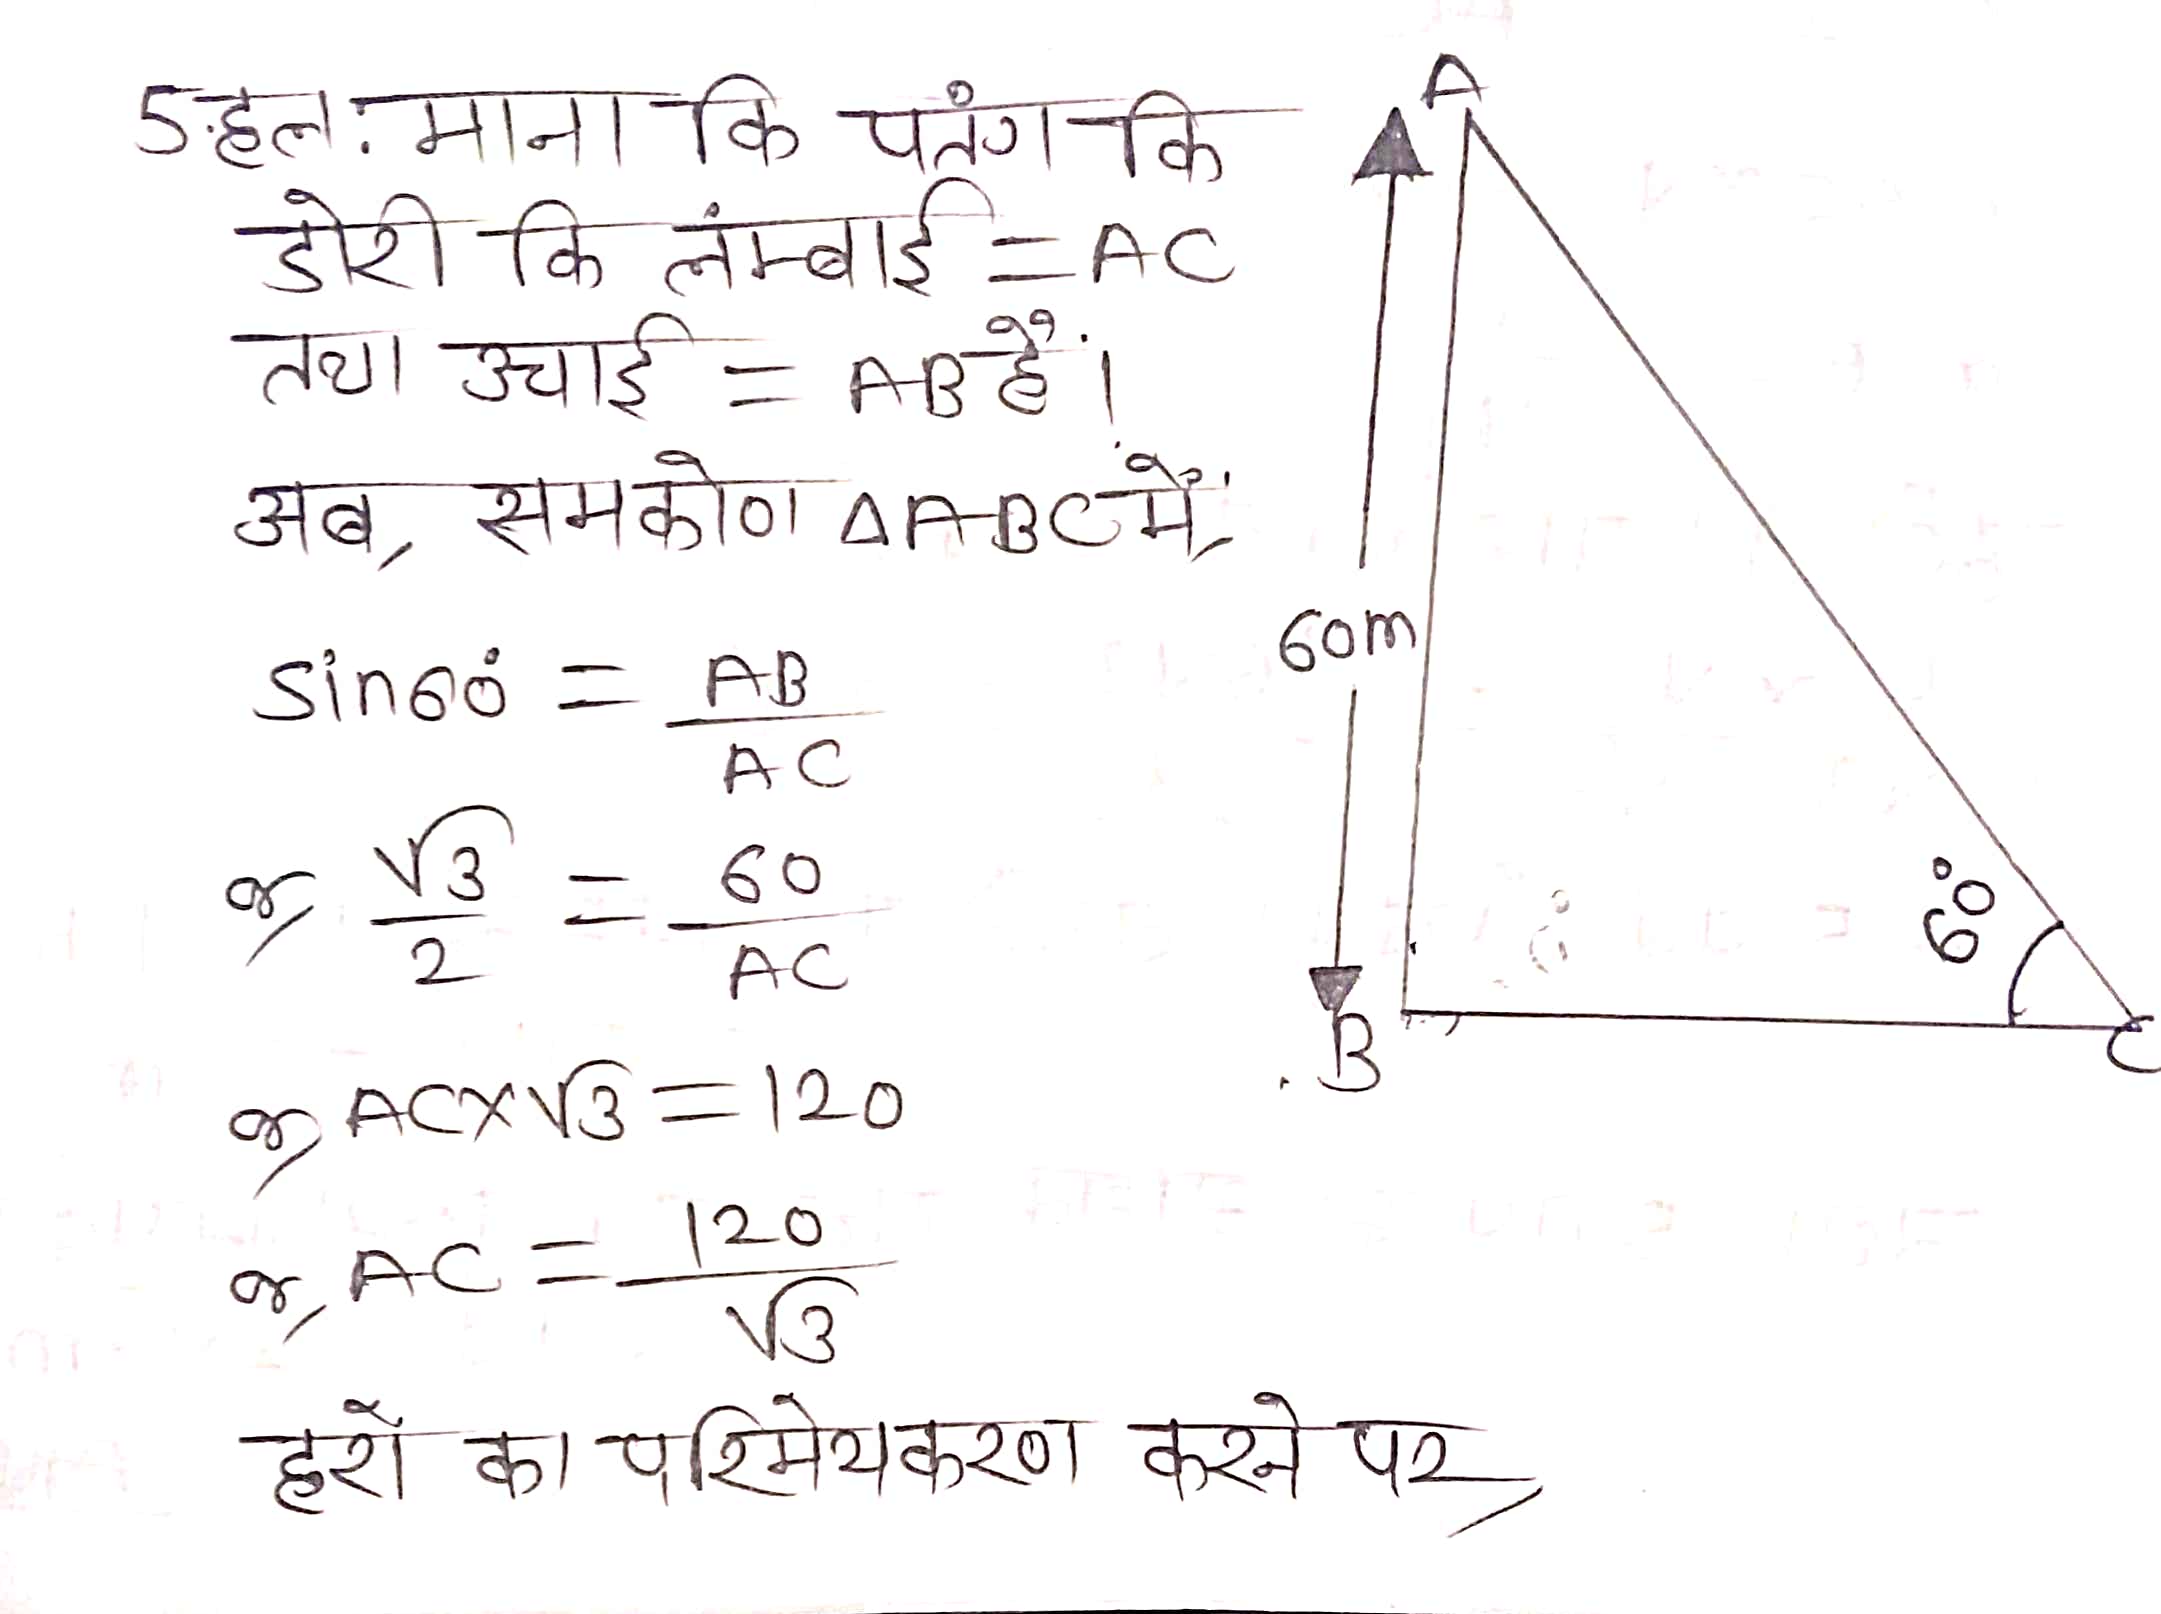 5.हल: माना कि पतंग कि
डोरी कि लंम्बाई = AC
तथा उचाई = AB हैं।
अब, समकोण ΔABC में,
sin60° = AB/AC
or, √3/2 = 60/AC
or, AC×√3 = 120
or, AC = 120/√3
हरों का परिमेयकरण करने पर,
A
60m
60°
B
C